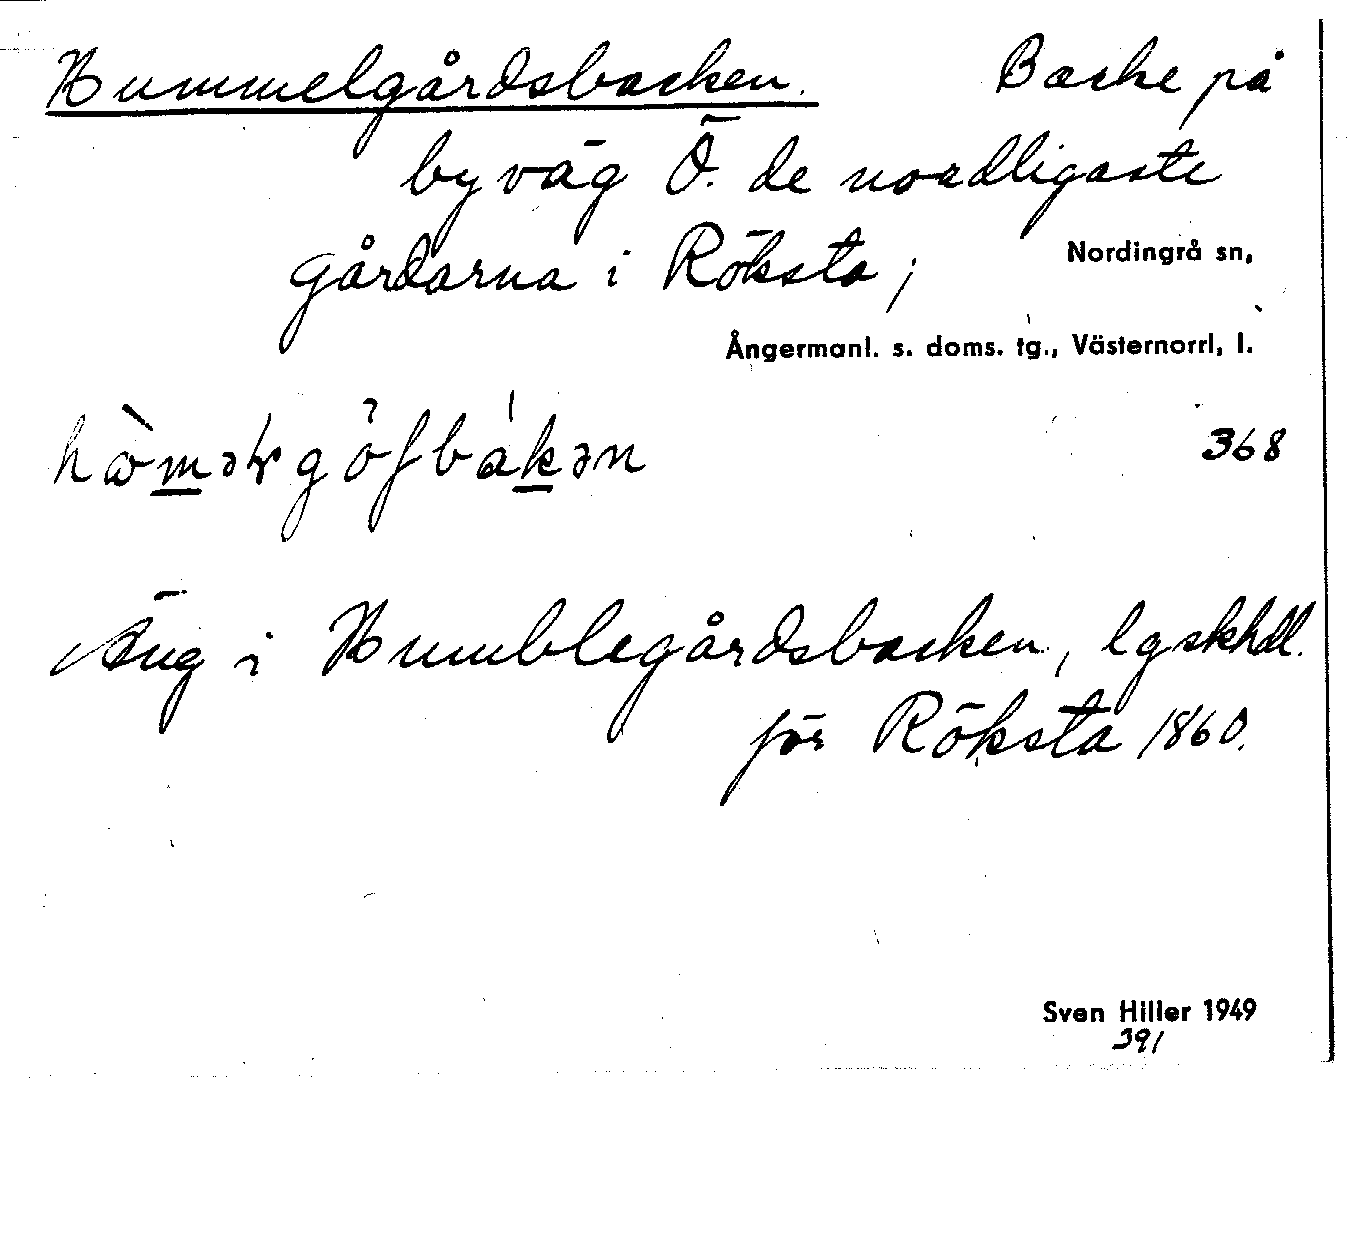 Hummelgårdsbacken. Backe på
byväg Ö. de nordligaste
gårdarna i Röksta;
Nordingrå sn,
Ångermanl. s. doms. tg., Västernorrl, l.
368
Äng i Humblegårdsbacken, lgskhdl.
för Röksta 1860.
Sven Hiller 1949
391